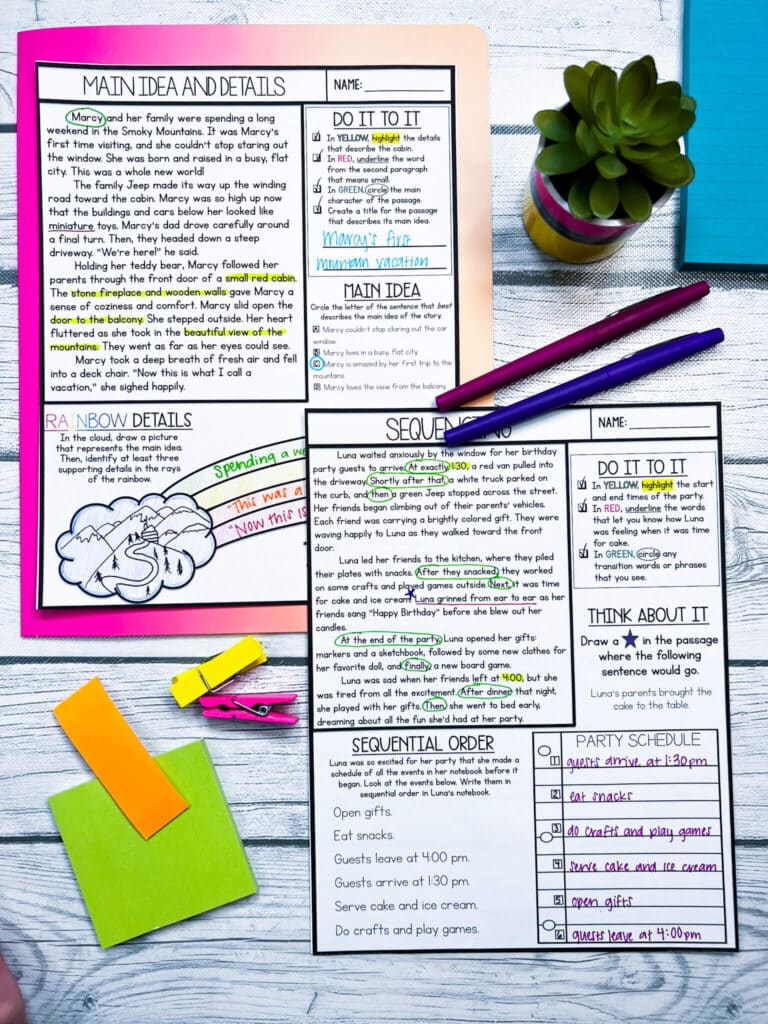 MAIN IDEA AND DETAILS
NAME:
Marcy and her family were spending a long
weekend in the Smoky Mountains. It was Marcy's
first time visiting, and she couldn't stop staring out
the window. She was born and raised in a busy, flat
city. This was a whole new world!
The family Jeep made its way up the winding
road toward the cabin. Marcy was so high up now
that the buildings and cars below her looked like
miniature toys. Marcy's dad drove carefully around
a final turn. Then, they headed down a steep
driveway. "We're here!" he said.
Holding her teddy bear, Marcy followed her
parents through the front door of a small red cabin.
The stone fireplace and wooden walls gave Marcy a
sense of coziness and comfort. Marcy slid open the
door to the balcony. She stepped outside. Her heart
fluttered as she took in the beautiful view of the
mountains. They went as far as her eyes could see.
Marcy took a deep breath of fresh air and fell
into a deck chair. "Now this is what I call a
vacation," she sighed happily.
DO IT TO IT
In YELLOW, highlight the details
that describe the cabin.
In RED, underline the word
from the second paragraph
that means small.
In GREEN, circle the main
character of the passage.
Create a title for the passage
that describes its main idea.
Marcy's first
muntain vacation
MAIN IDEA
Circle the letter of the sentence that best
describes the main idea of the story.
A Marcy couldn't stop staring out the car
window.
B Marcy lives in a busy, flat city.
C Marcy is amazed by her first trip to the
mountains.
D Marcy loves the view from the balcony.
RAINBOW DETAILS
In the cloud, draw a picture
that represents the main idea.
Then, identify at least three
supporting details in the rays
of the rainbow.
Spending a we
"This was a
"Now this is
SEQUENCING
NAME:
Luna waited anxiously by the window for her birthday
party guests to arrive. At exactly 1:30, a red van pulled into
the driveway. Shortly after that, a white truck parked on
the curb, and then a green Jeep stopped across the street.
Her friends began climbing out of their parents' vehicles.
Each friend was carrying a brightly colored gift. They were
waving happily to Luna as they walked toward the front
door.
Luna led her friends to the kitchen, where they piled
their plates with snacks. After they snacked, they worked
on some crafts and played games outside. Next, it was time
for cake and ice cream. Luna grinned from ear to ear as her
friends sang "Happy Birthday" before she blew out her
candles.
At the end of the party, Luna opened her gifts:
markers and a sketchbook, followed by some new clothes for
her favorite doll, and finally, a new board game.
Luna was sad when her friends left at 4:00, but she
was tired from all the excitement. After dinner that night,
she played with her gifts. Then, she went to bed early,
dreaming about all the fun she'd had at her party.
DO IT TO IT
In YELLOW, highlight the start
and end times of the party.
In RED, underline the words
that let you know how Luna
was feeling when it was time
for cake.
In GREEN, circle any
transition words or phrases
that you see.
THINK ABOUT IT
Draw a in the passage
where the following
sentence would go.
Luna's parents brought the
cake to the table.
SEQUENTIAL ORDER
Luna was so excited for her party that she made a
schedule of all the events in her notebook before it
began. Look at the events below. Write them in
sequential order in Luna's notebook.
Open gifts.
Eat snacks.
Guests leave at 4:00 pm.
Guests arrive at 1:30 pm.
Serve cake and ice cream.
Do crafts and play games.
PARTY SCHEDULE
1 guests arrive at 1:30pm
2 eat snacks
3 do crafts and play games
4 serve cake and ice cream
5 open gifts
6 guests leave at 4:00pm